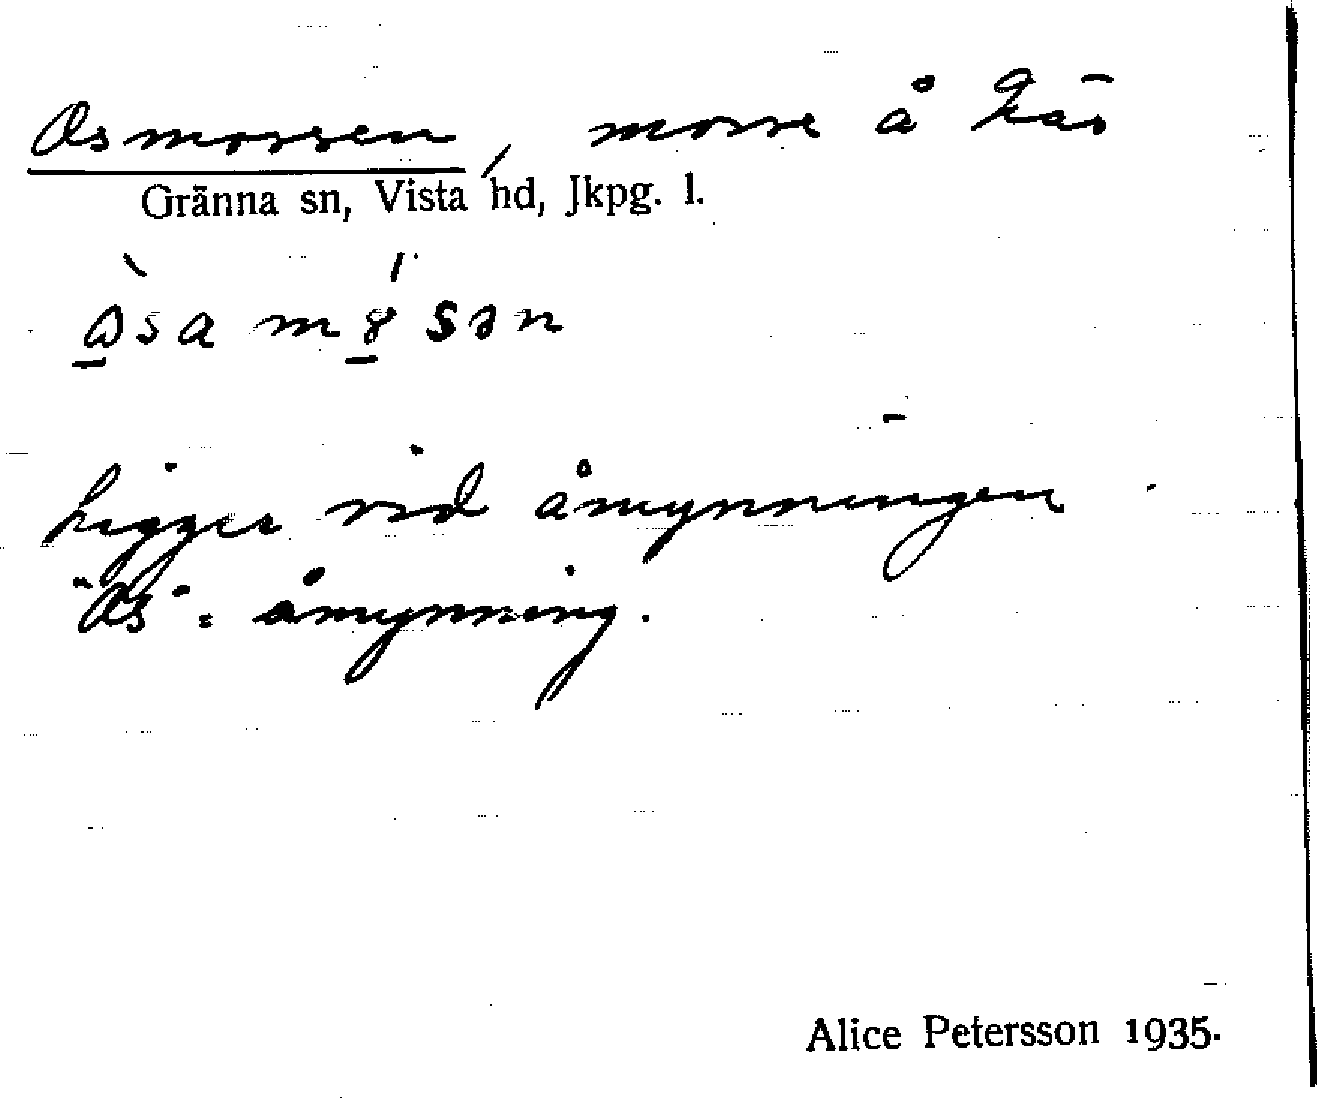 Osmossen, mosse å Näs
Gränna sn, Vista hd, Jkpg. l.
Ligger vid åmynningen
"Os" = åmynning.
Alice Petersson 1935.